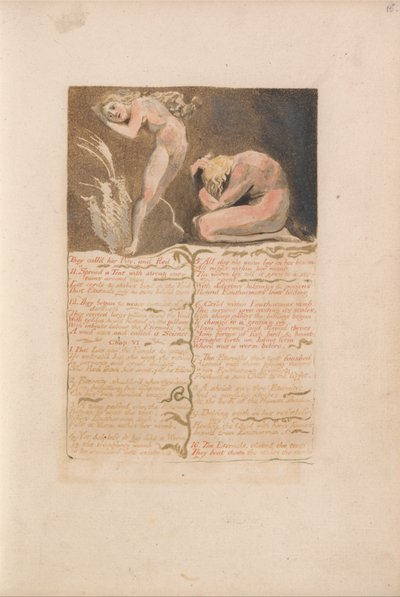 They call'd her Pity, and fled
Spread a Tent with strong curtains around them
Let cords & stakes bind in the Void
That Eternals may no more behold them
They began to weave curtains of darkness
They erected large pillars round the Void
With golden hooks fastend in the pillars
With infinite labour the Eternals
A woof wove, and called it Science
Chap: VI
1. But Los saw the Female & pitied
He embrac'd her, she wept, she refus'd
She fled from his arms, yet he followd
2. Eternity shudder'd when they saw
On his own divided image
3. A time passed over, the Eternals
Felt a Worm within her womb
4. Yet helpless it lay like a Worm
In the trembling womb
To be moulded into existence
5. All day the worm lay on her bosom
All night within her womb
The worm lay till it grew to a serpent
With dolorous hissings & poisons
Round Enitharmons loins folding
6. Coild within Enitharmons womb
The serpent grew casting its scales,
With sharp pangs the hissings began
To change to a grating cry,
Many sorrows and dismal throes
Many forms of fish, bird & beast,
Brought forth an Infant form
Where was a worm before.
7. The Eternals their tent finished
Alarm'd with these gloomy visions
When Enitharmon groaning
Produc'd a man Child to the light.
8. A shriek ran thro' Eternity:
And a paralytic stroke;
At the birth of the Human shadow.
9. Delving earth in his resistless way;
Howling, the Child with fierce flames
Issu'd from Enitharmon.
10. The Eternals, closed the tent
They beat down the stakes the cords